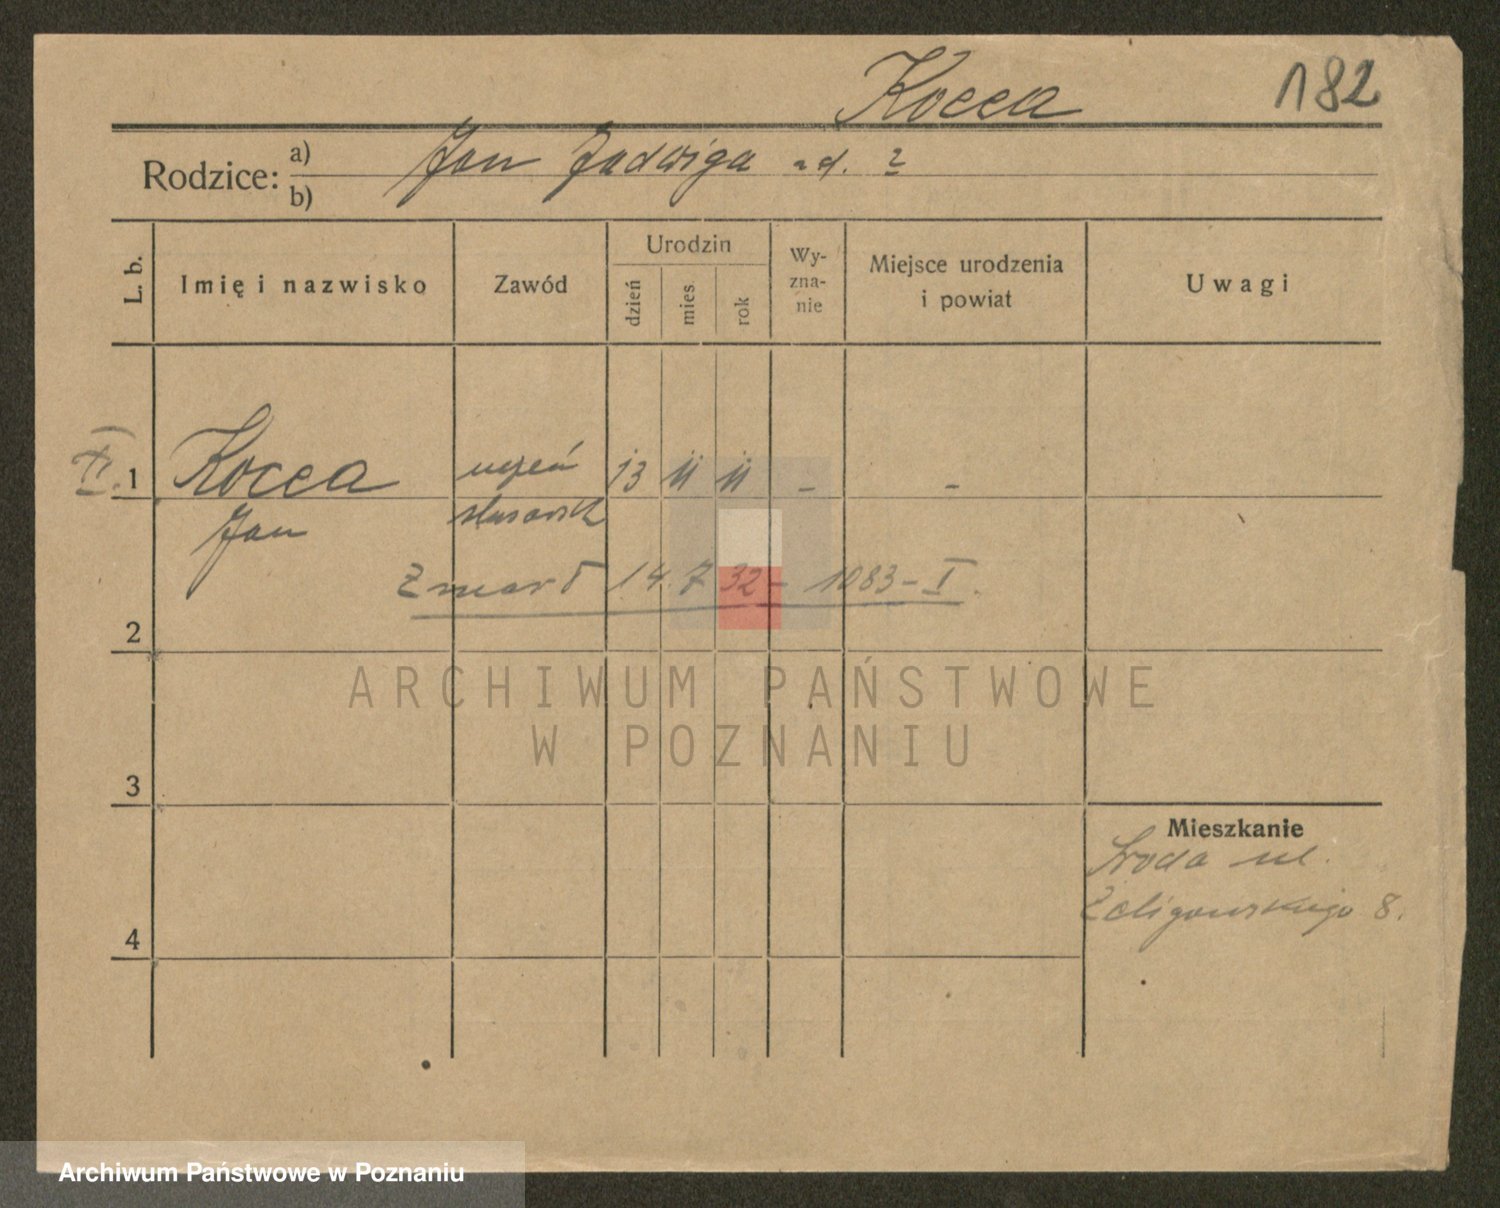 Kocea 182
Rodzice: a) Jan Jadwiga zd. ?
b)
L. b. Imię i nazwisko Zawód Urodzin dzień mies rok Wy-zna-nie Miejsce urodzenia i powiat Uwagi
1 Kocea uczeń 13 11 11 - -
Jan ślusarsk
Zmarł 14. 7 32 - 1083 - I.
2
ARCHIWUM PAŃSTWOWE
W POZNANIU
3
Mieszkanie
Środa ul.
Żeligowskiego 8.
4
Archiwum Państwowe w Poznaniu